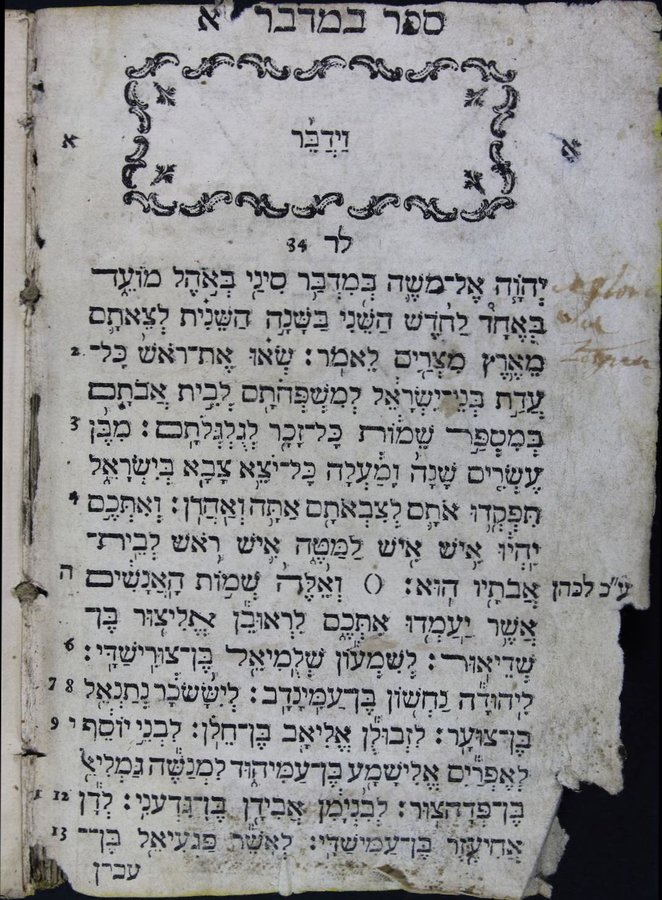 ספר במדבר א
א
וַיְדַבֵּר
א
לד 34
יְהֹוָה אֶל־מֹשֶׁה בְּמִדְבַּר סִינַי בְּאֹהֶל מוֹעֵד
בְּאֶחָד לַחֹדֶשׁ הַשֵּׁנִי בַּשָּׁנָה הַשֵּׁנִית לְצֵאתָם
מֵאֶרֶץ מִצְרַיִם לֵאמֹר: שְׂאוּ אֶת־רֹאשׁ כׇּל־ 2
עֲדַת בְּנֵי־יִשְׂרָאֵל לְמִשְׁפְּחֹתָם לְבֵית אֲבֹתָם
בְּמִסְפַּר שֵׁמוֹת כׇּל־זָכָר לְגֻלְגְּלֹתָם: מִבֶּן 3
עֶשְׂרִים שָׁנָה וָמַעְלָה כׇּל־יֹצֵא צָבָא בְּיִשְׂרָאֵל
תִּפְקְדוּ אֹתָם לְצִבְאֹתָם אַתָּה וְאַהֲרֹן: וְאִתְּכֶם 4
יִהְיוּ אִישׁ אִישׁ לַמַּטֶּה אִישׁ רֹאשׁ לְבֵית־
אֲבֹתָיו הוּא: () וְאֵלֶּה שְׁמוֹת הָאֲנָשִׁים ה
ע״כ לכהן
אֲשֶׁר יַעַמְדוּ אִתְּכֶם לִרְאוּבֵן אֱלִיצוּר בֶּן
שְׁדֵיאוּר: לְשִׁמְעוֹן שְׁלֻמִיאֵל בֶּן־צוּרִישַׁדָּי: 6
לִיהוּדָה נַחְשׁוֹן בֶּן־עַמִּינָדָב: לְיִשָּׂשכָר נְתַנְאֵל 7 8
בֶּן־צוּעָר: לִזְבוּלֻן אֱלִיאָב בֶּן־חֵלֹן: לִבְנֵי יוֹסֵף י 9
לְאֶפְרַיִם אֱלִישָׁמָע בֶּן־עַמִּיהוּד לִמְנַשֶּׁה גַּמְלִיאֵל
בֶּן־פְּדָהצוּר: לְבִנְיָמִן אֲבִידָן בֶּן־גִּדְעֹנִי: לְדָן 12
אֲחִיעֶזֶר בֶּן־עַמִּישַׁדָּי: לְאָשֵׁר פַּגְעִיאֵל בֶּן־ 13
עכרן